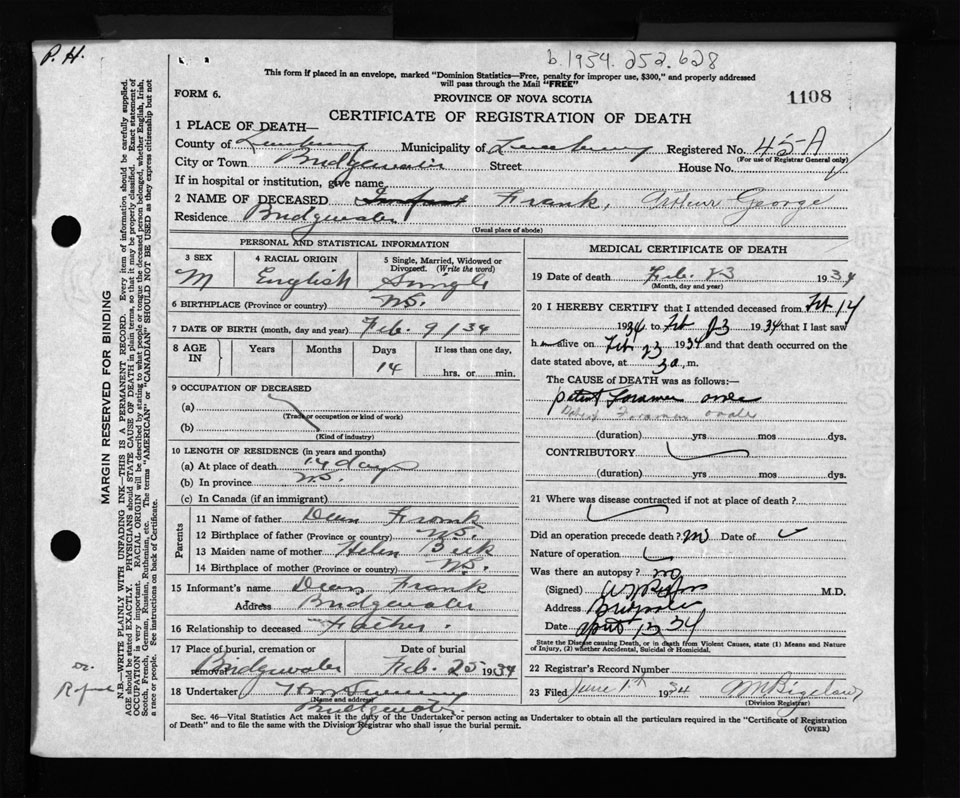 P. H.
b. 1934. 252. 628
This form if placed in an envelope, marked "Dominion Statistics—Free, penalty for improper use, $300," and properly addressed
will pass through the Mail "FREE"
FORM 6.
PROVINCE OF NOVA SCOTIA
1108
CERTIFICATE OF REGISTRATION OF DEATH
1 PLACE OF DEATH—
County of Lunenburg Municipality of Lunenburg Registered No. 45-A
(For use of Registrar General only)
City or Town Bridgewater Street House No.
If in hospital or institution, give name
2 NAME OF DECEASED Infant Frank, Arthur George
Residence Bridgewater
(Usual place of abode)
PERSONAL AND STATISTICAL INFORMATION
3 SEX 4 RACIAL ORIGIN 5 Single, Married, Widowed or Divorced. (Write the word)
M English Single
6 BIRTHPLACE (Province or country) N.S.
7 DATE OF BIRTH (month, day and year) Feb. 9/34
8 AGE IN Years Months Days If less than one day,
14 hrs. or min.
9 OCCUPATION OF DECEASED
(a)
(Trade or occupation or kind of work)
(b)
(Kind of industry)
10 LENGTH OF RESIDENCE (in years and months)
(a) At place of death 14 days
(b) In province N.S.
(c) In Canada (if an immigrant)
Parents
11 Name of father Dean Frank
12 Birthplace of father (Province or country) N.S.
13 Maiden name of mother Helen
14 Birthplace of mother (Province or country) N.S.
15 Informant's name Dean Frank
Address Bridgewater
16 Relationship to deceased Father.
17 Place of burial, cremation or removal Date of burial
Bridgewater Feb. 25 1934
18 Undertaker
(Name and address)
Bridgewater.
MEDICAL CERTIFICATE OF DEATH
19 Date of death Feb. 23 1934
(Month, day and year)
20 I HEREBY CERTIFY that I attended deceased from Feb 14
1934 to Feb 23 1934 that I last saw
h m alive on Feb 23 1934 and that death occurred on the
date stated above, at 3 a. m.
The CAUSE OF DEATH was as follows:—
patent foramen ovale
Patent Foramen ovale
(duration) yrs mos dys.
CONTRIBUTORY
(duration) yrs mos dys.
21 Where was disease contracted if not at place of death?
Did an operation precede death? no Date of
Nature of operation
Was there an autopsy? no
(Signed) M.D.
Address Bridgewater
Date April 13 34
State the Disease causing Death, or in death from Violent Causes, state (1) Means and Nature
of Injury, (2) whether Accidental, Suicidal or Homicidal.
22 Registrar's Record Number
23 Filed June 1st 1934 Bigelow
(Division Registrar)
Sec. 46—Vital Statistics Act makes it the duty of the Undertaker or person acting as Undertaker to obtain all the particulars required in the "Certificate of Registration
of Death" and to file the same with the Division Registrar who shall issue the burial permit.
(OVER)
MARGIN RESERVED FOR BINDING
N.B.—WRITE PLAINLY WITH UNFADING INK—THIS IS A PERMANENT RECORD. Every item of information should be carefully supplied.
AGE should be stated EXACTLY. PHYSICIANS should STATE CAUSE OF DEATH in plain terms, so that it may be properly classified. Exact statement of
OCCUPATION is very important. RACIAL ORIGIN will be described by stating to what people or tongue the deceased person belonged, whether English, Irish,
Scotch, French, German, Russian, Ruthenian, etc. The terms "AMERICAN" or "CANADIAN" SHOULD NOT BE USED as they express citizenship but not
a race or people. See instructions on back of Certificate.
Dr.